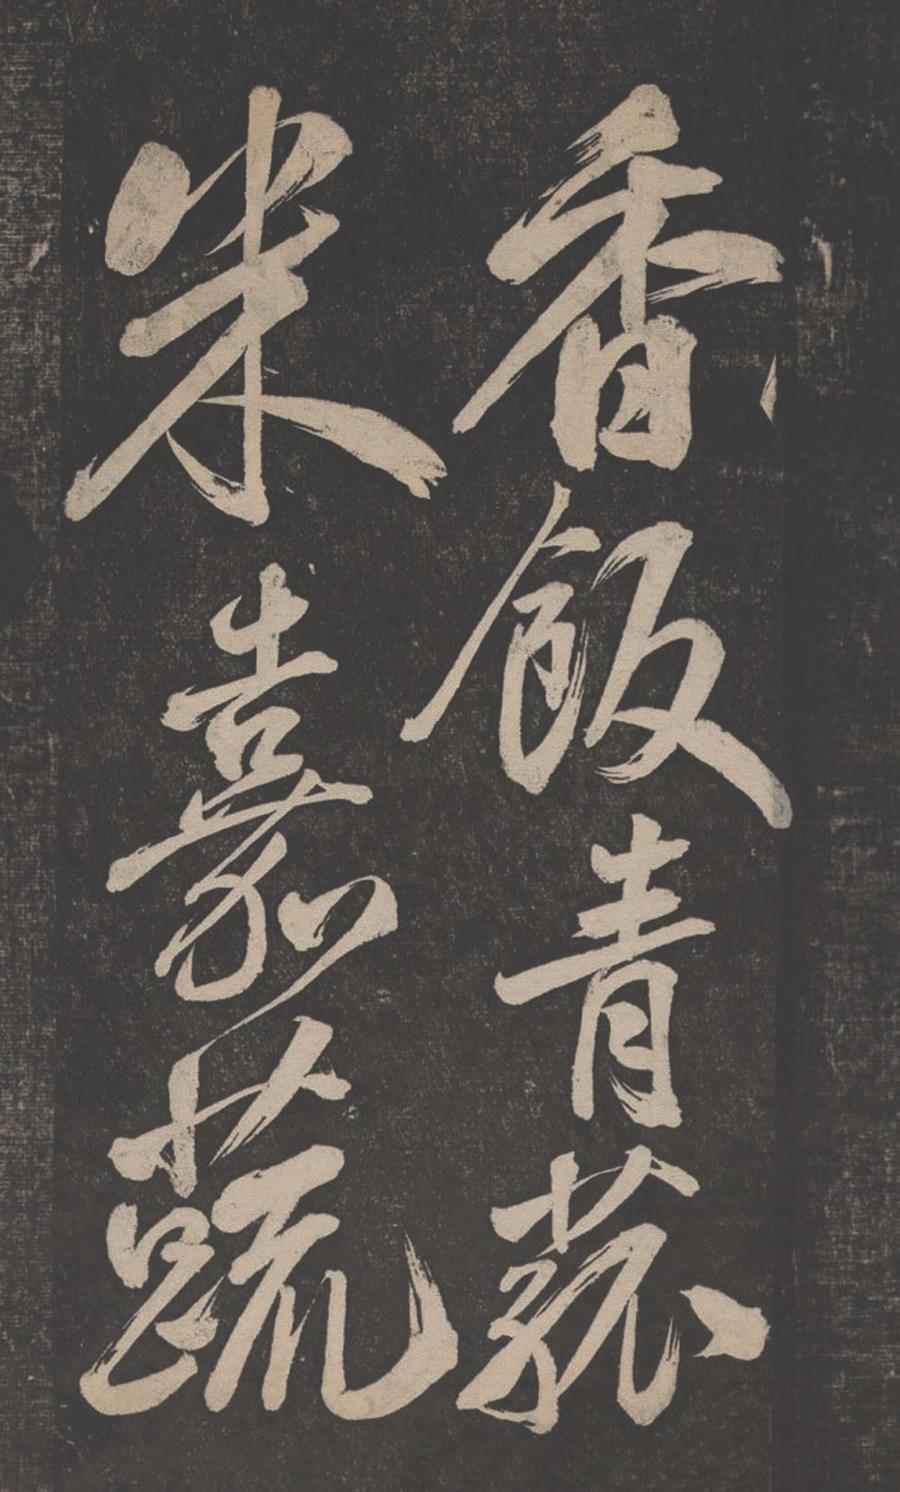 香飯青菰
米嘉蔬